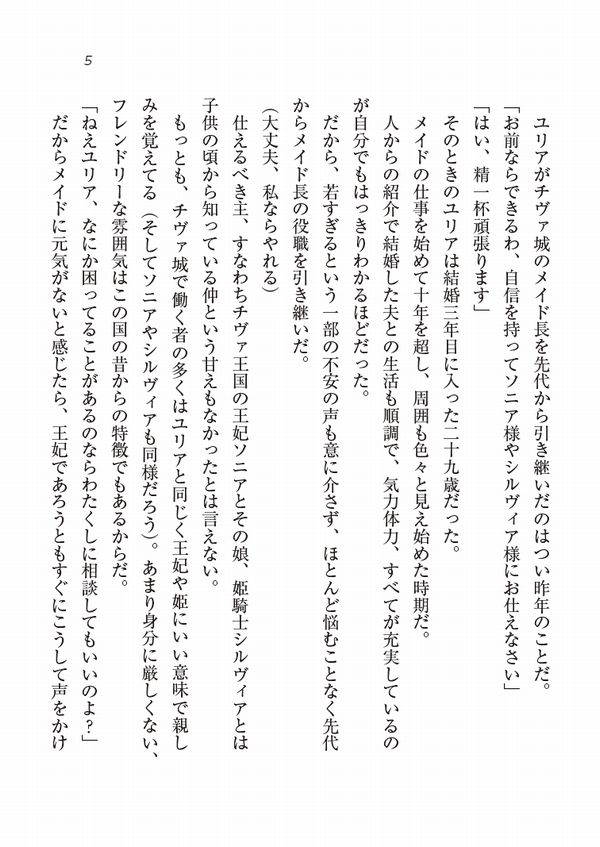 5
ユリアがチヴァ城のメイド長を先代から引き継いだのはつい昨年のことだ。
「お前ならできるわ、自信を持ってソニア様やシルヴィア様にお仕えなさい」
「はい、精一杯頑張ります」
そのときのユリアは結婚三年目に入った二十九歳だった。
メイドの仕事を始めて十年を超し、周囲も色々と見え始めた時期だ。
人からの紹介で結婚した夫との生活も順調で、気力体力、すべてが充実しているの
が自分でもはっきりわかるほどだった。
だから、若すぎるという一部の不安の声も意に介さず、ほとんど悩むことなく先代
からメイド長の役職を引き継いだ。
（大丈夫、私ならやれる）
仕えるべき主、すなわちチヴァ王国の王妃ソニアとその娘、姫騎士シルヴィアとは
子供の頃から知っている仲という甘えもなかったとは言えない。
もっとも、チヴァ城で働く者の多くはユリアと同じく王妃や姫にいい意味で親し
みを覚えてる（そしてソニアやシルヴィアも同様だろう）。あまり身分に厳しくない、
フレンドリーな雰囲気はこの国の昔からの特徴でもあるからだ。
「ねえユリア、なにか困ってることがあるのならわたくしに相談してもいいのよ？」
だからメイドに元気がないと感じたら、王妃であろうともすぐにこうして声をかけ